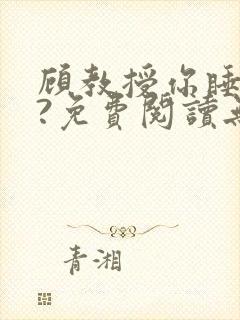 顾教授你睡
?免費閱讀
青湘